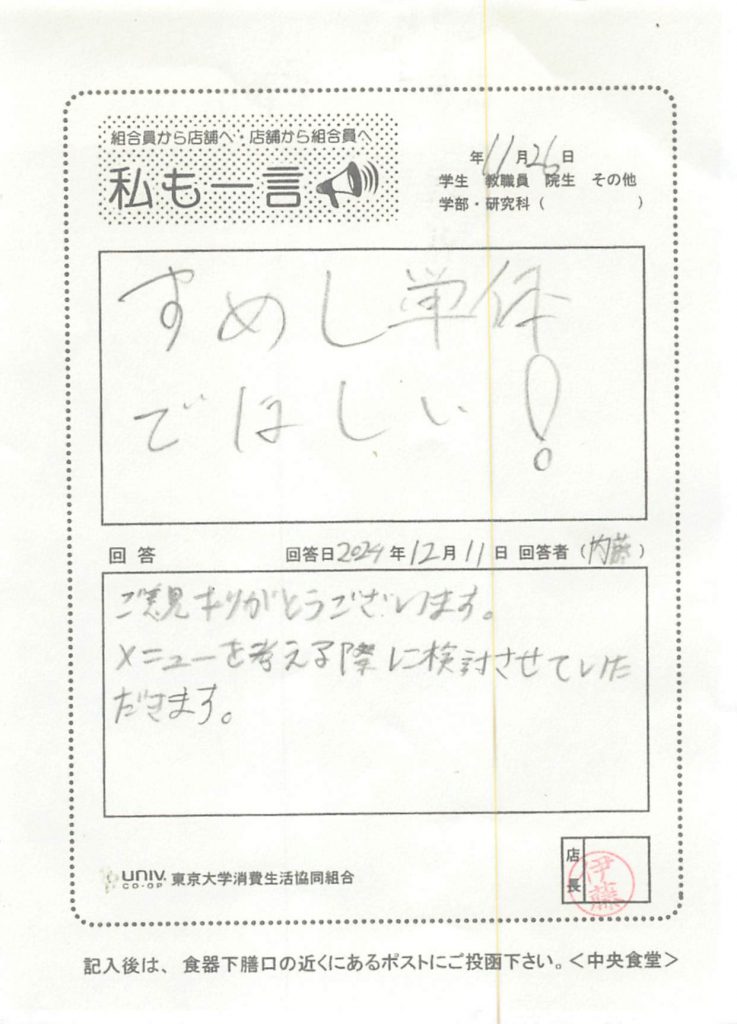 組合員から店舗へ・店舗から組合員へ
私も一言
年11月26日
学生 教職員 院生 その他
学部・研究科（ ）
すめし単体
でほしい!
回答 回答日2024年12月11日 回答者（内藤）
ご意見ありがとうございます。
メニューを考える際に検討させていた
だきます。
店長
伊藤
UNIV. CO-OP 東京大学消費生活協同組合
記入後は、食器下膳口の近くにあるポストにご投函下さい。＜中央食堂＞